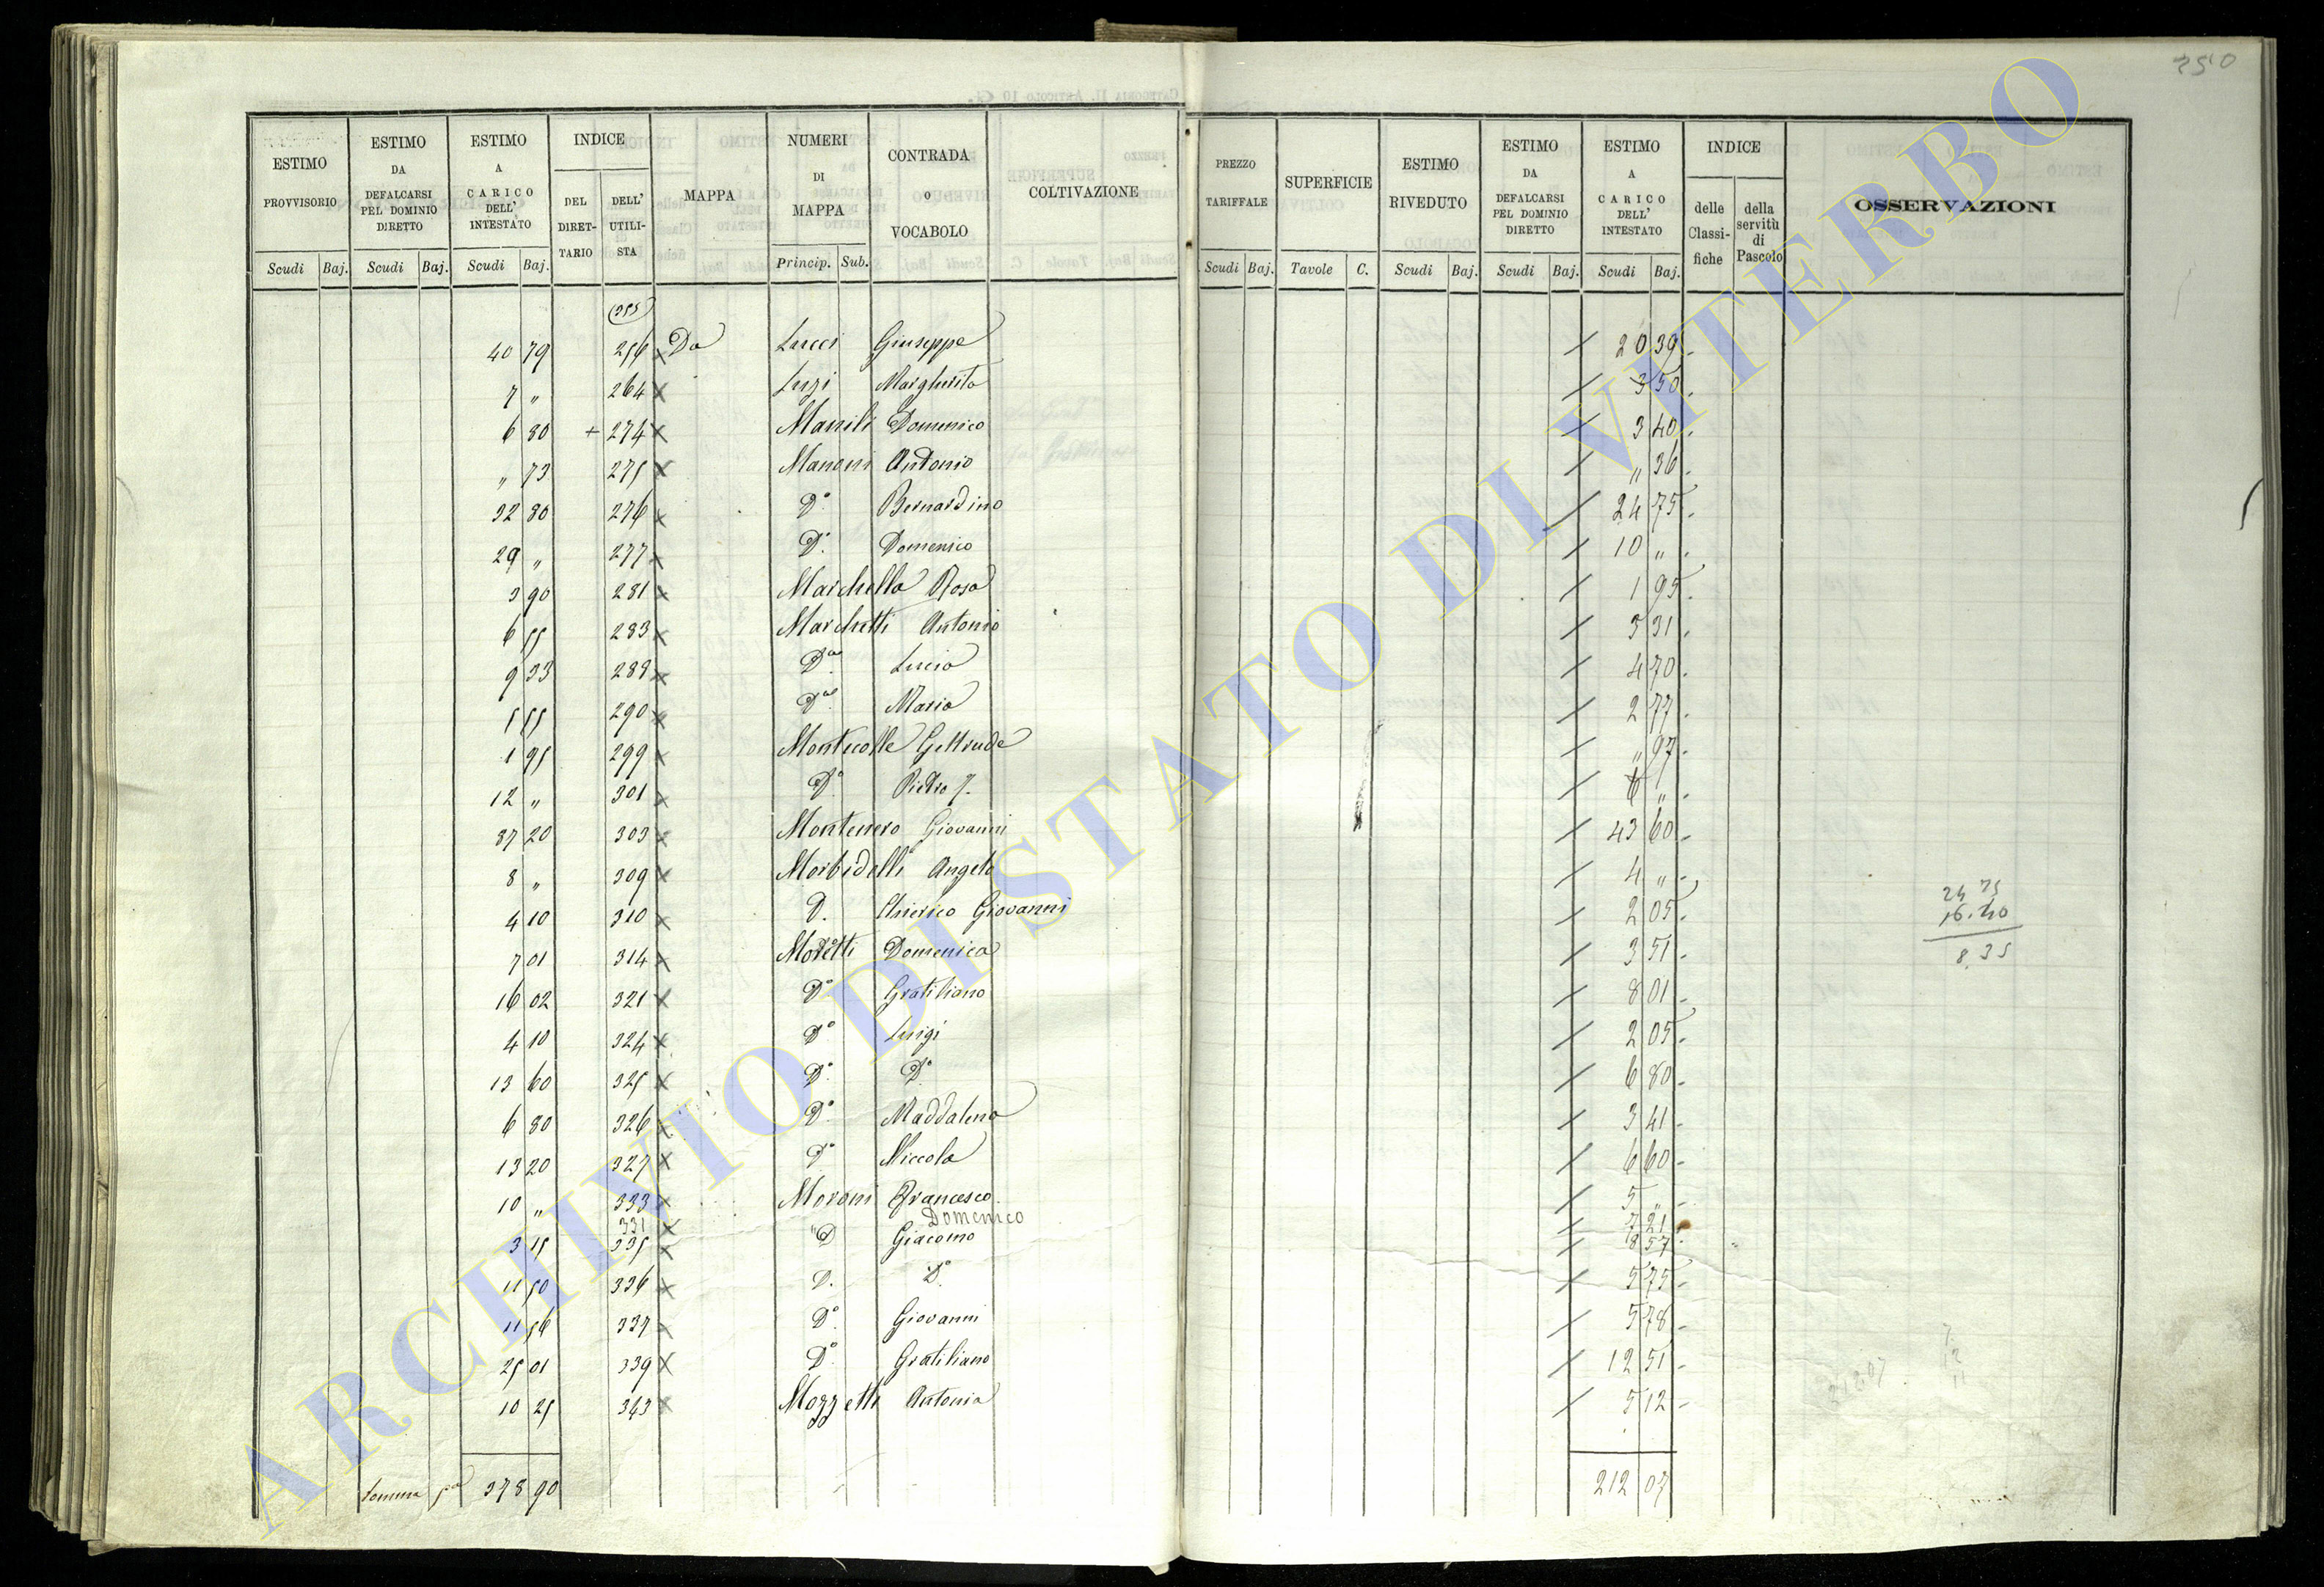 250
ESTIMO PROVVISORIO
ESTIMO DA DEFALCARSI PEL DOMINIO DIRETTO
ESTIMO A CARICO DELL' INTESTATO
INDICE
DEL DIRETTARIO
DELL' UTILISTA
MAPPA
NUMERI DI MAPPA
CONTRADA o VOCABOLO
COLTIVAZIONE
PREZZO TARIFFALE
SUPERFICIE
ESTIMO RIVEDUTO
ESTIMO DA DEFALCARSI PEL DOMINIO DIRETTO
ESTIMO A CARICO DELL' INTESTATO
INDICE
delle Classifiche
della servitù di Pascolo
OSSERVAZIONI
Scudi Baj. Scudi Baj. Scudi Baj. Princip. Sub. Scudi Baj. Tavole C. Scudi Baj. Scudi Baj. Scudi Baj.
40 79 256 x Da Lucci Giuseppe / 20 39
7 " 264 x Luzi Margherita / 3 50
6 80 + 274 x Marsili Domenico / 3 40
" 73 275 x Manoni Antonio / " 36
32 80 276 x Do Bernardino / 24 75
29 " 277 x Do Domenico / 10 "
3 90 281 x Marchella Rosa / 1 95
6 55 283 x Marchetti Antonio / 3 31
9 33 288 x Da Lucia / 4 70
5 55 290 x Da Maria / 2 77
1 95 299 x Montecolle Geltrude / " 97
12 " 301 x Do Pietro / 6 "
87 20 303 x Montenero Giovanni / 43 60
8 " 309 x Morbidelli Angelo / 4 "
4 10 310 x D. Chierico Giovanni / 2 05
7 01 314 x Moretti Domenica / 3 51
16 02 321 x Do Gratiliano / 8 01
4 10 324 x Do Luigi / 2 05
13 60 325 x Do Do / 6 80
6 80 326 x Do Maddalena / 3 41
13 20 327 x Do Niccola / 6 60
10 " 333 x Moroni Francesco / 5 "
331 x Domenico / 7 21
3 15 335 x D Giacomo / 8 57
11 50 336 x D. Do / 5 75
11 56 337 x Do Giovanni / 5 78
25 01 339 x Do Gratiliano / 12 51
10 25 343 x Mozzetti Antonia / 5 12
24 75
16.40
8.35
212.07
Somma 378 90
212 07
ARCHIVIO DI STATO DI VITERBO